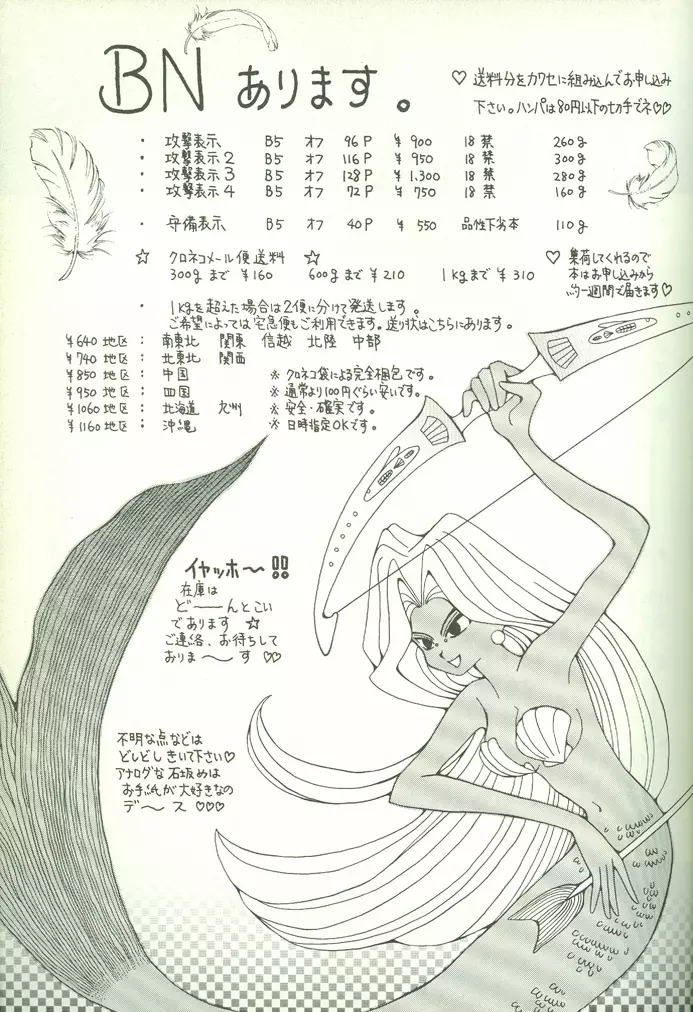 BN あります。
♡ 送料分をカワセに組み込んでお申し込み
下さい。ハンパは80円以下のセカ手でネ♡♡
・ 攻撃表示 B5 オフ 96P ¥900 18禁 260g
・ 攻撃表示2 B5 オフ 116P ¥950 18禁 300g
・ 攻撃表示3 B5 オフ 128P ¥1,300 18禁 280g
・ 攻撃表示4 B5 オフ 72P ¥750 18禁 160g
・ 守備表示 B5 オフ 40P ¥550 品性下劣本 110g
☆ クロネコメール便送料 ☆
300gまで ¥160 600gまで ¥210 1kgまで ¥310
♡ 集荷してくれるので
本はお申し込みから
約一週間で届きます♡
・ 1kgを超えた場合は2便に分けて発送します。
ご希望によっては宅急便もご利用できます。送り状はこちらにあります。
¥640地区: 南東北 関東 信越 北陸 中部
¥740地区: 北東北 関西
¥850地区: 中国 ※クロネコ袋による完全梱包です。
¥950地区: 四国 ※通常より100円ぐらい安いです。
¥1060地区: 北海道 九州 ※安全・確実です。
¥1160地区: 沖縄 ※日時指定OKです。
イヤッホ〜!!
在庫は
ど――んとこい
であります ☆
ご連絡、お待ちして
おりま〜〜す ♡♡
不明な点などは
どしどしきいて下さい♡
アナログな石坂めは
お手紙が大好きなの
デ〜ス ♡♡♡